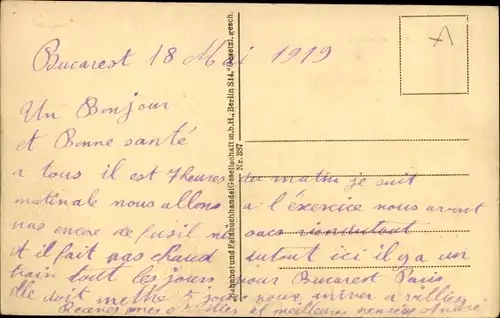 Bucarest 18 Mai 1919
Un Bonjour
et Bonne santé
a tous il est 7 heures du matin je suit
matinale nous allons a l'exercice nous avont
pas encore de fusil ni sacs
et il fait pas chaud dutout ici il y a un
train tout les jours pour Bucarest Paris
elle doit mettre 5 jours pour arriver a villiers
et meilleures pensées André
Bahnhof und Feldbuchhandel Gesellschaft m.b.H., Berlin S 14. Gesetzl. gesch.
Nr. 387